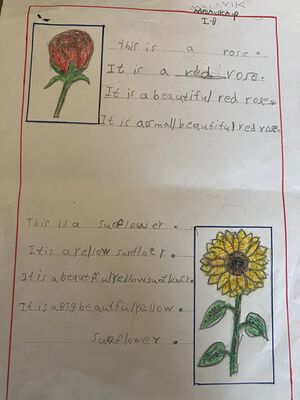 I-8
This is a rose.
It is a red rose.
It is a beautiful red rose.
It is a small beautiful red rose.
This is a sunflower.
It is a yellow sunfloer.
It is a beautiful yellow sunflower.
It is a big beautful yellow.
sunflower.